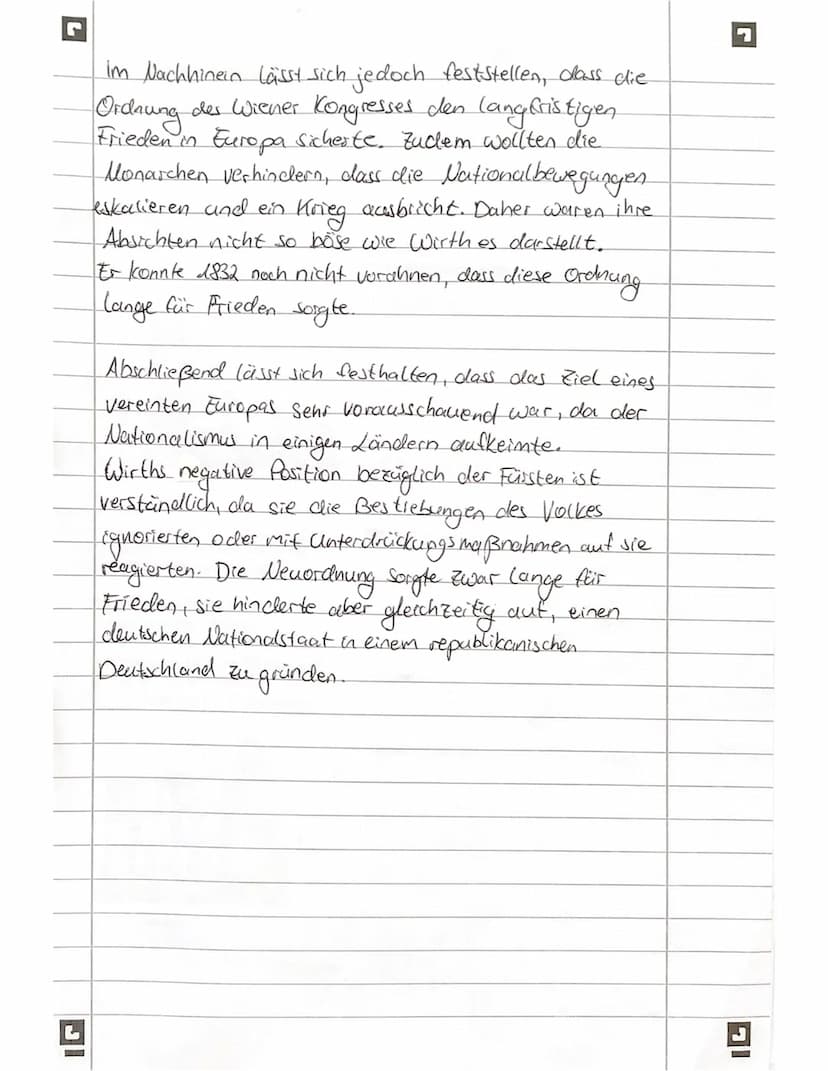 Im Nachhinein lässt sich jedoch feststellen, dass die
Ordnung des Wiener Kongresses den langfristigen
Frieden in Europa sicherte. Zudem wollten die
Monarchen verhindern, dass die Nationalbewegungen
eskalieren und ein Krieg ausbricht. Daher waren ihre
Absichten nicht so böse wie Wirth es darstellt.
Er konnte 1832 noch nicht vorahnen, dass diese Ordnung
lange für Frieden sorgte.
Abschließend lässt sich festhalten, dass das Ziel eines
vereinten Europas sehr vorausschauend war, da der
Nationalismus in einigen Ländern aufkeimte.
Wirths negative Position bezüglich der Fürsten ist
verständlich, da sie die Bestrebungen des Volkes
ignorierten oder mit Unterdrückungsmaßnahmen auf sie
reagierten. Die Neuordnung sorgte zwar lange für
Frieden, sie hinderte aber gleichzeitig auf, einen
deutschen Nationalstaat in einem republikanischen
Deutschland zu gründen.